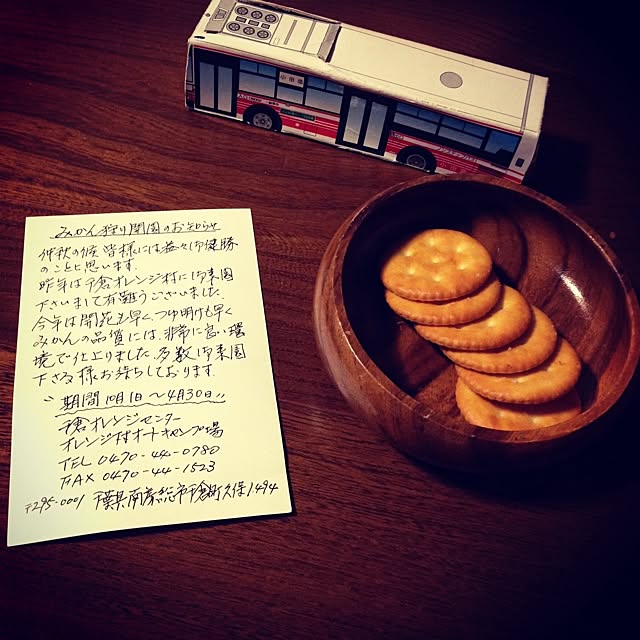 小田急
みかん狩り開園のお知らせ
仲秋の候 皆様には益々御健勝
のことと思います。
昨年は千倉オレンジ村に御来園
下さいまして有難うございました。
今年は開花も早く、つゆ明けも早く
みかんの品質には、非常に良い環
境で仕上りました。多数御来園
下さる様お待ちしております。
"期間 10月1日〜4月30日"
千倉オレンジセンター
オレンジ村オートキャンプ場
TEL 0470-44-0780
FAX 0470-44-1523
〒295-0001 千葉県南房総市千倉町久保1494